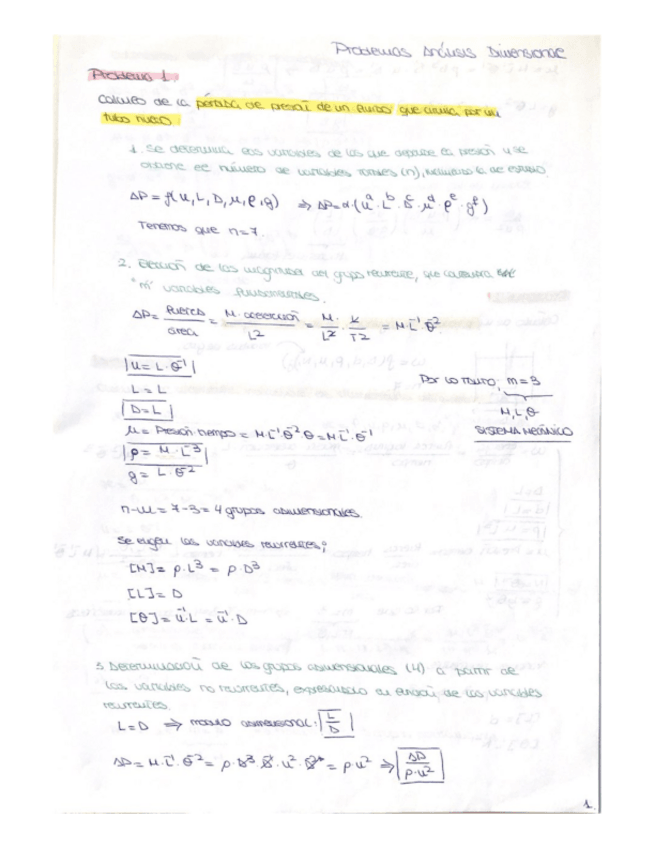 Problemas Análisis Dimensional
Problema 1.
Cálculo de la pérdida de presión de un fluido que circula por un
tubo nuevo.
1. Se determina las variables de las que depende la presión y se
obtiene el número de variables totales (n), incluyendo la de estudio.
ΔP = f(u, L, D, μ, ρ, g) ⇒ ΔP = α·(u^a · L^b · D^c · μ^d · ρ^e · g^f)
Tenemos que n=7.
2. Elección de las magnitudes del grupo recurrente, que contendrá
"m" variables fundamentales.
ΔP = Fuerza/área = M·aceleración/L² = M/L² · L/T² = M·L⁻¹·θ⁻²
u = L·θ⁻¹
L = L
Por lo tanto; m=3
D = L
M, L, θ
μ = Presión·tiempo = M·L⁻¹·θ⁻²·θ = M·L⁻¹·θ⁻¹
SISTEMA MECÁNICO
ρ = M·L⁻³
g = L·θ⁻²
n-m = 7-3 = 4 grupos adimensionales.
Se eligen las variables recurrentes;
[M] = ρ·L³ = ρ·D³
[L] = D
[θ] = u⁻¹·L = u⁻¹·D
3. Determinación de los grupos adimensionales (4) a partir de
las variables no recurrentes, expresándolo en función de las variables
recurrentes.
L = D ⇒ módulo adimensional: L/D
ΔP = M·L⁻¹·θ⁻² = ρ·D³ · u² · = ρ·u² ⇒ ΔP/ρ·u²
1.